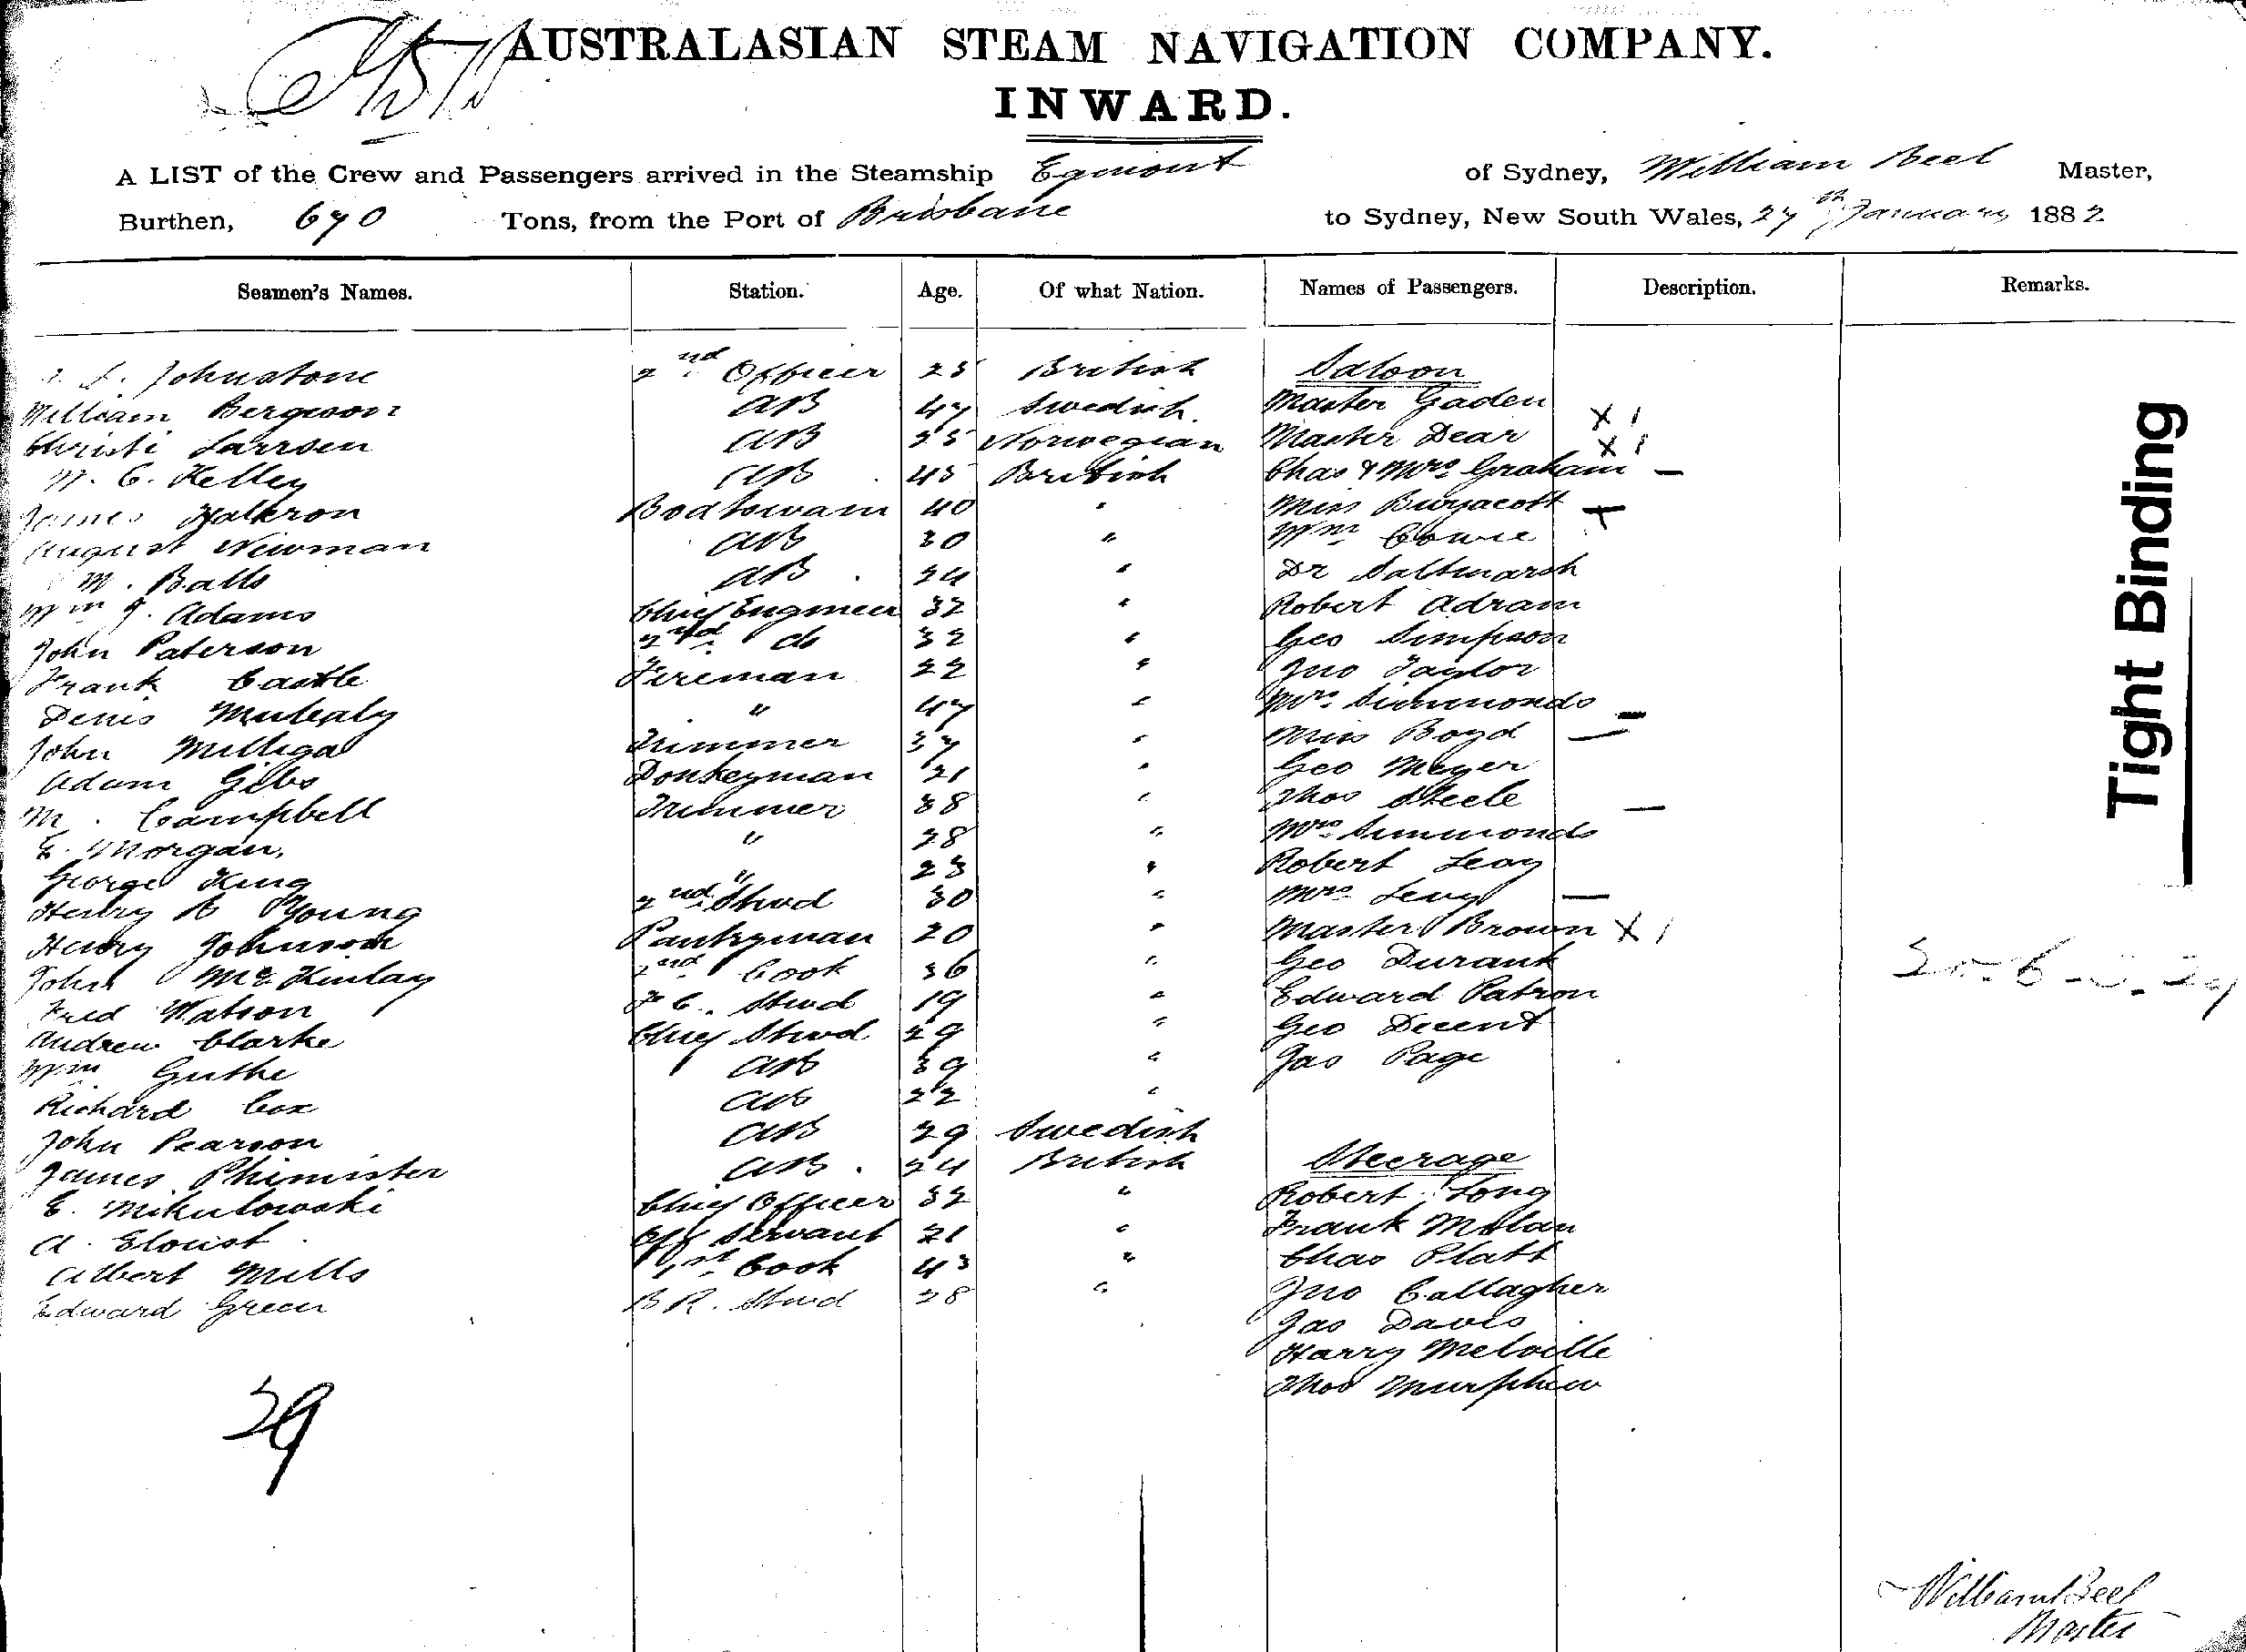 AUSTRALASIAN STEAM NAVIGATION COMPANY.
INWARD.
A LIST of the Crew and Passengers arrived in the Steamship Egmont of Sydney, William Beel Master,
Burthen, 670 Tons, from the Port of Brisbane to Sydney, New South Wales, 27th January 1882
Seamen's Names. Station. Age. Of what Nation. Names of Passengers. Description. Remarks.
Johnstone 2nd Officer 25 British Saloon
William Bergwson AB 47 Swedish Master Gaden X 1
Christi Larrsen AB 25 Norwegian Master Dear X 1
W. C. Kelley AB 45 British Chas & Mrs Graham —
James Halkron Boatswain 40 " Miss Buzacott
August Newman AB 30 " Wm Cowie
M. Balls AB 24 " Dr Saltmarsh
Wm J. Adams Chief Engineer 37 " Robert Adram
John Paterson 2nd do 32 " Geo Simpson
Frank Castle Fireman 22 " Jno Taylor
Denis Mulealy " 47 " Mrs Simmonds —
John Milligal Trimmer 37 " Miss Boyd —
Adam Gibs Donkeyman 21 " Geo Meyer
M. Campbell Trimmer 38 " Thos Steele —
E. Morgan " 28 " Mrs Simmonds
George King " 23 " Robert Levy
Henry A Young 2nd Stwd 30 " Mrs Levy —
Henry Johnson Pantryman 20 " Master Brown X 1
John McKinlay 2nd Cook 36 " Geo Durank
Fred Watson F C. Stwd 19 " Edward Patron
Andrew Clarke Chief Stwd 29 " Geo Decent
Wm Guthe AB 39 " Jas Page
Richard Cox AB 22 "
John Pearson AB 29 Swedish
James Phimister AB 24 British Steerage
E. Mikulowski Chief Officer 32 " Robert Long
A. Elouist Off Servant 21 " Frank Molan
Albert Mills 1st Cook 43 " Chas Platt
Edward Green B R. Stwd 28 " Jno Callagher
Jas Davis
Harry Melville
Thos Murphew
29
Tight Binding
William Beel
Master